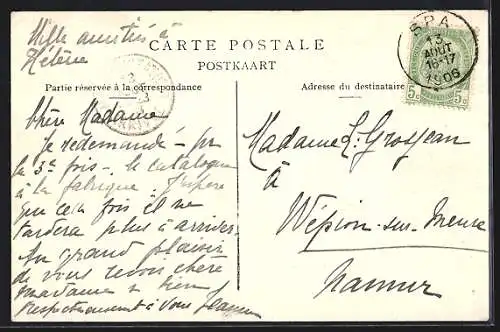 Mille amitiés à
Hélène
CARTE POSTALE
POSTKAART
Partie réservée à la correspondance
Adresse du destinataire
SPA
13
AOUT
16-17
1906
5c 5c
Chère Madame
Je redemande - pr
la 3e fois - le catalogue
à la fabrique. J'espère
que cette fois il ne
tardera plus à arriver.
Au grand plaisir
de vous revoir chère
madame & bien
respectueusement à vous
Madame L. Grosjean
à
Wépion-sur-Meuse
Namur